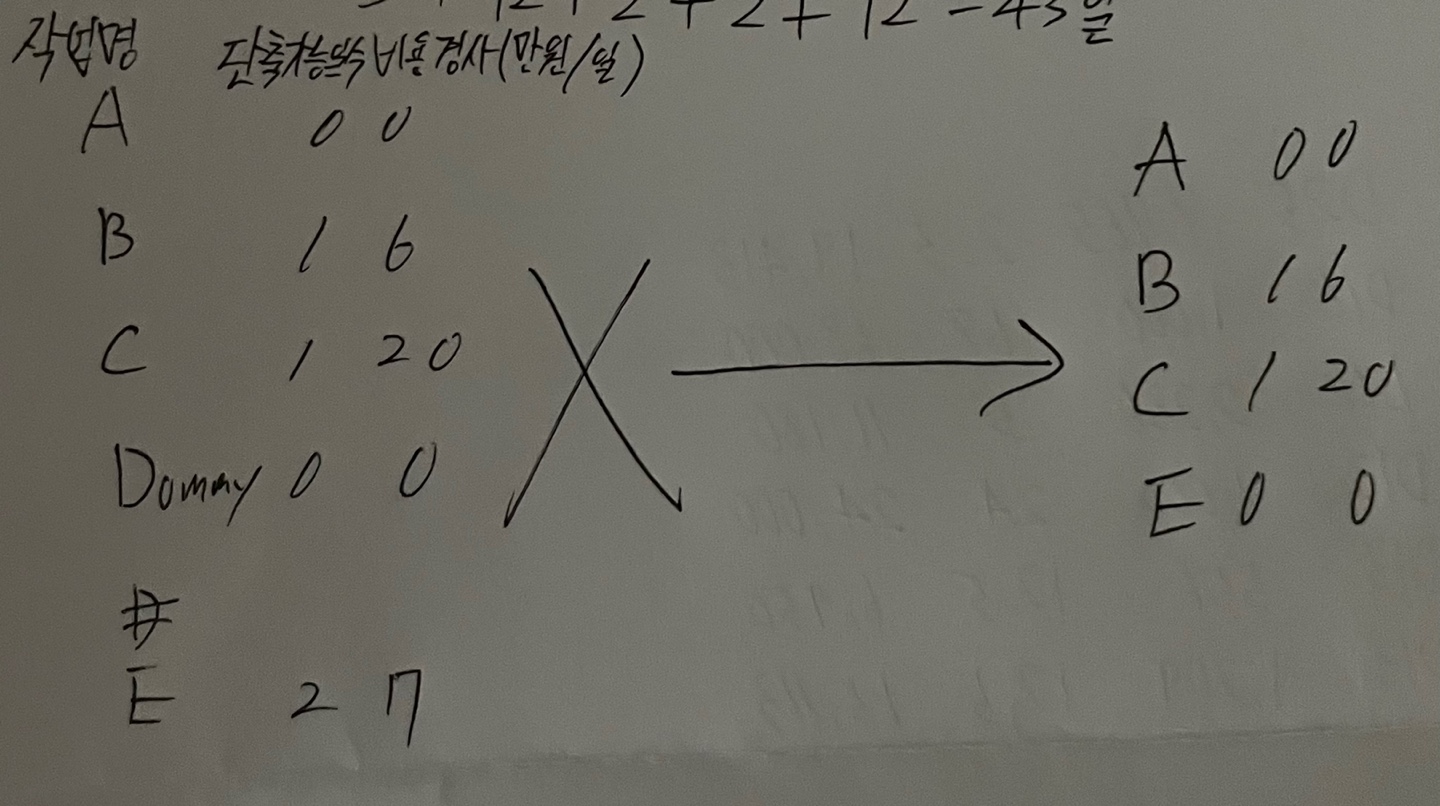 + 12 + 2 + 2 + 12 = 43일
작업명 단축가능일수 비용경사(만원/일)
A 0 0
B 1 6
C 1 20
Dommy 0 0
E 2 7
A 0 0
B 1 6
C 1 20
E 0 0